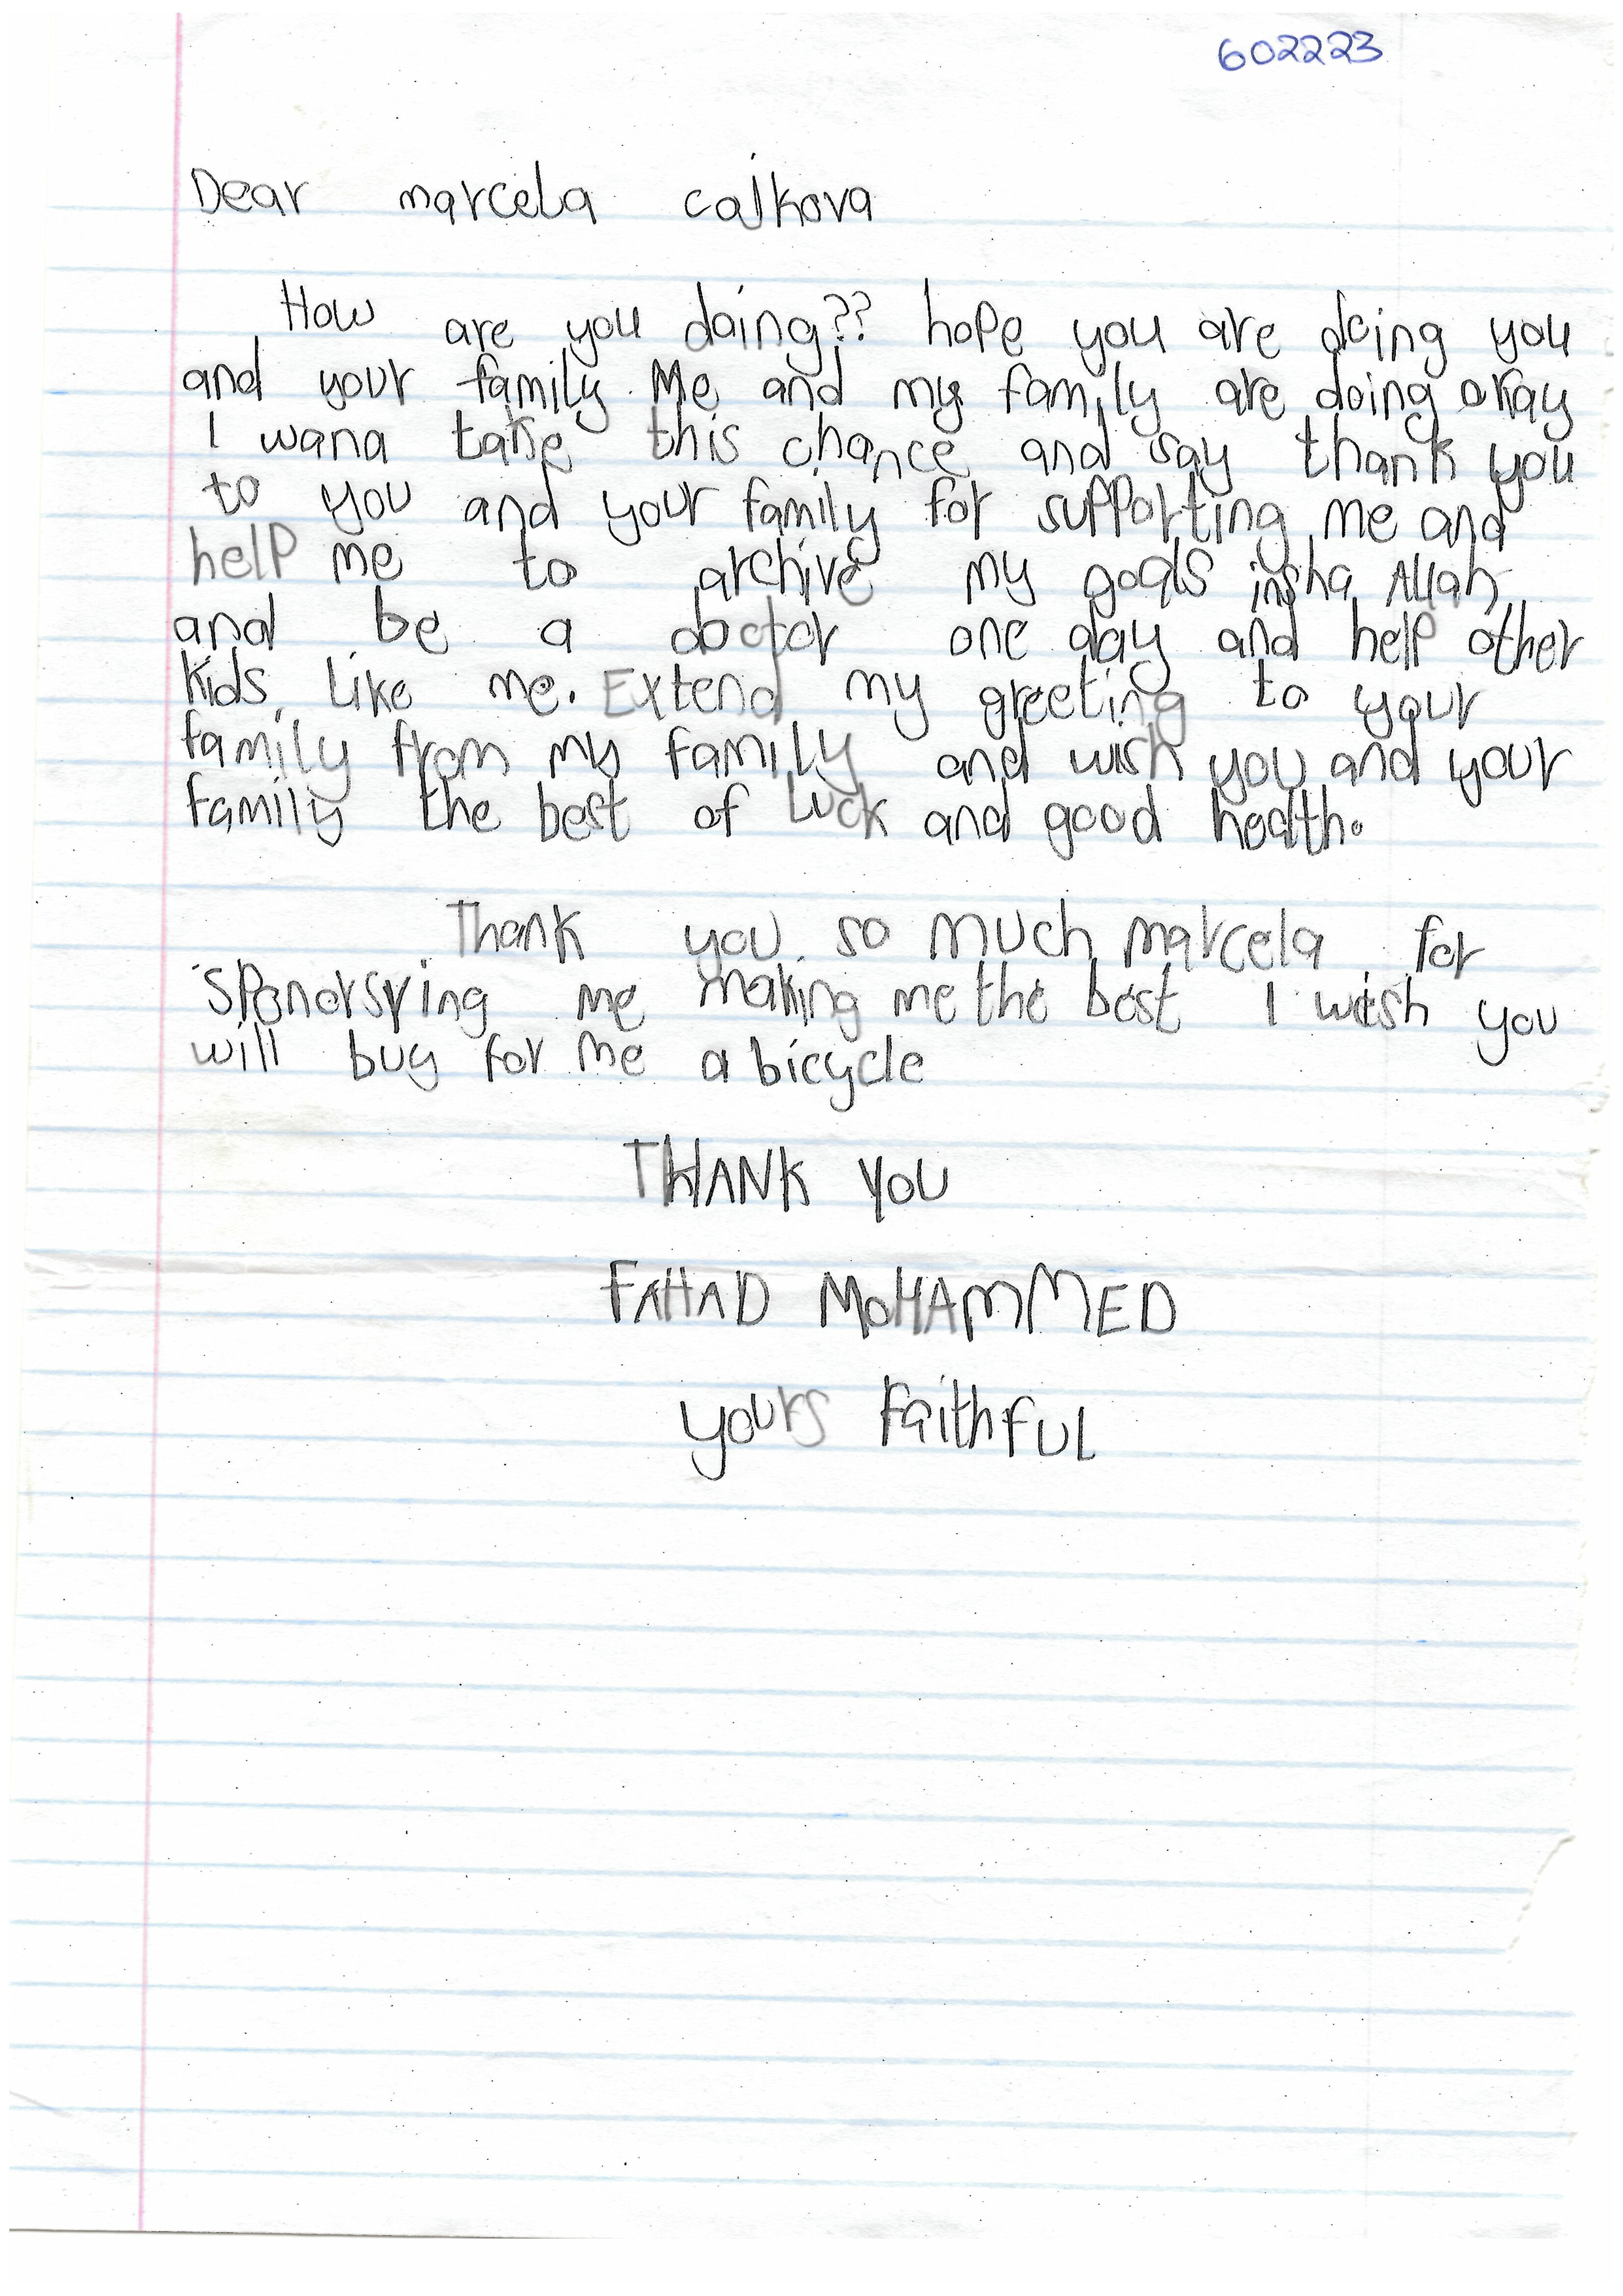 602223
Dear marcela cajkova
How are you doing?? hope you are doing you
and your family. Me and my family are doing okay
I wana take this chance and say thank you
to you and your family for supporting me and
help me to archive my goals insha Allah
and be a doctor one day and help other
kids like me. Extend my greeting to your
family from my family and wish you and your
family the best of luck and good health.
Thank you so much marcela for
sponorsring me making me the best I wish you
will buy for me a bicycle
THANK YOU
FAHAD MOHAMMED
yours Faithful